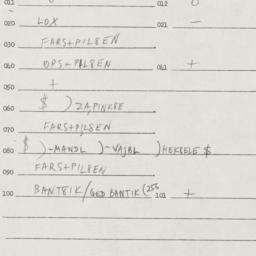 011 012 0
020 LOX 021 —
030 FARS+PILSEN
040 OPS+PILSEN 041 +
050 +
060 $ ) ZAPINKSE
070 FARS+PILSEN
080 $ )-MANDL )-VAJBL )HEKELE $
090 FARS+PILSEN
100 BANTSIK/GEO BANTIK (255 101 +